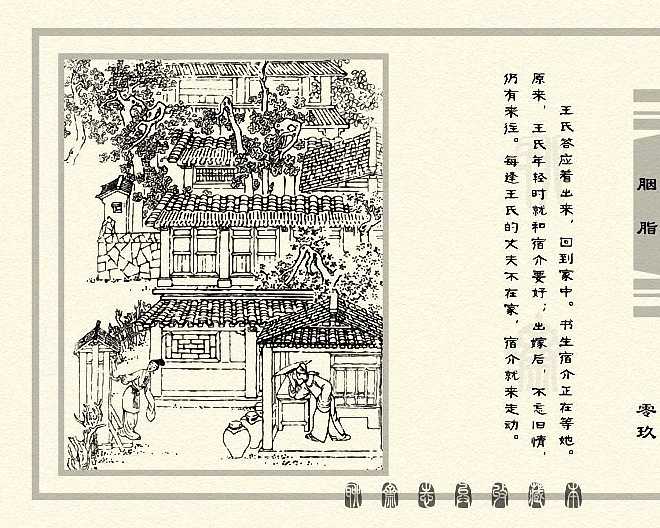 王氏答应着出来，回到家中。书生宿介正在等她。
原来，王氏年轻时就和宿介要好；出嫁后，不忘旧情，
仍有来往。每逢王氏的丈夫不在家，宿介就来走动。
胭脂
零玖